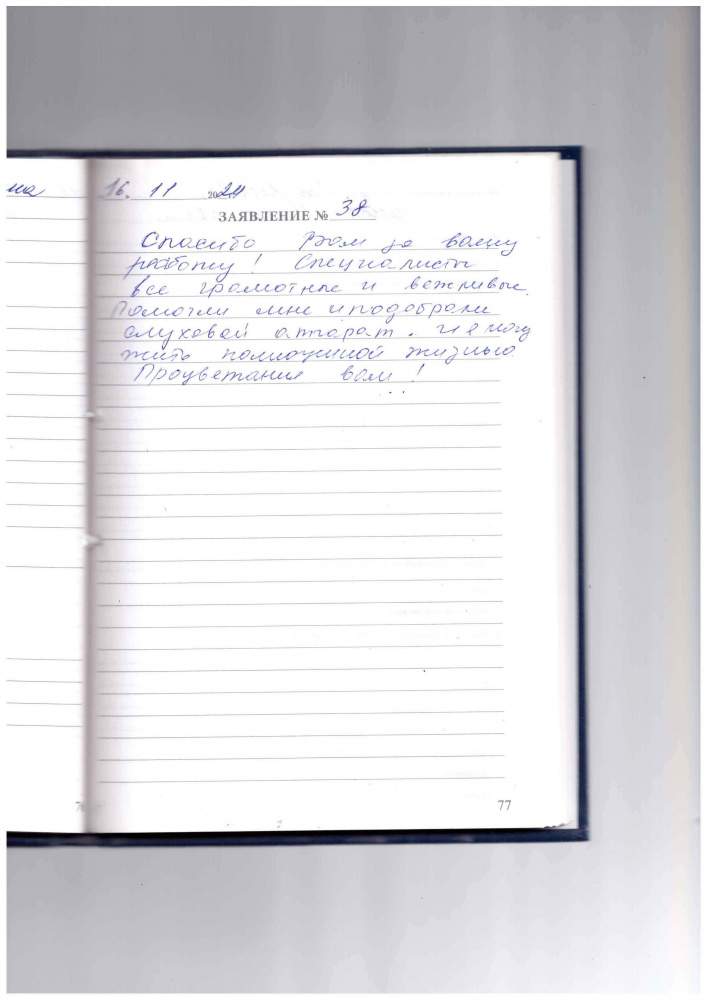 16. 11 2021
ЗАЯВЛЕНИЕ № 38
Спасибо Вам за вашу
работу! Специалисты
все грамотные и вежливые.
Помогли мне и подобрали
слуховой аппарат. и я могу
жить полноценной жизнью.
Процветания вам!
77